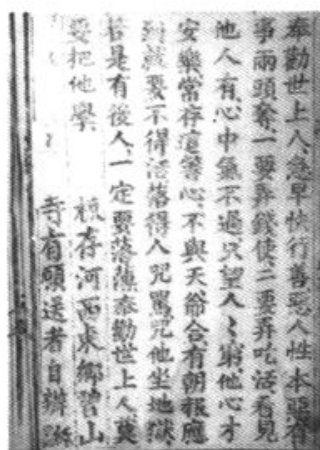 奉勸世上人急早快行善惡人性本惡有
事兩頭奪一要弄錢使二要弄吃活看見
他人有心中氣不過只望人〻窮他心才
安樂常存這等心不與天爺合有朝報應
到就要不得活落得人咒罵咒他坐地獄
若是有後人一定要落薄奉勸世上人莫
要把他學
板存河西東鄉碧山
寺有願送者自辦